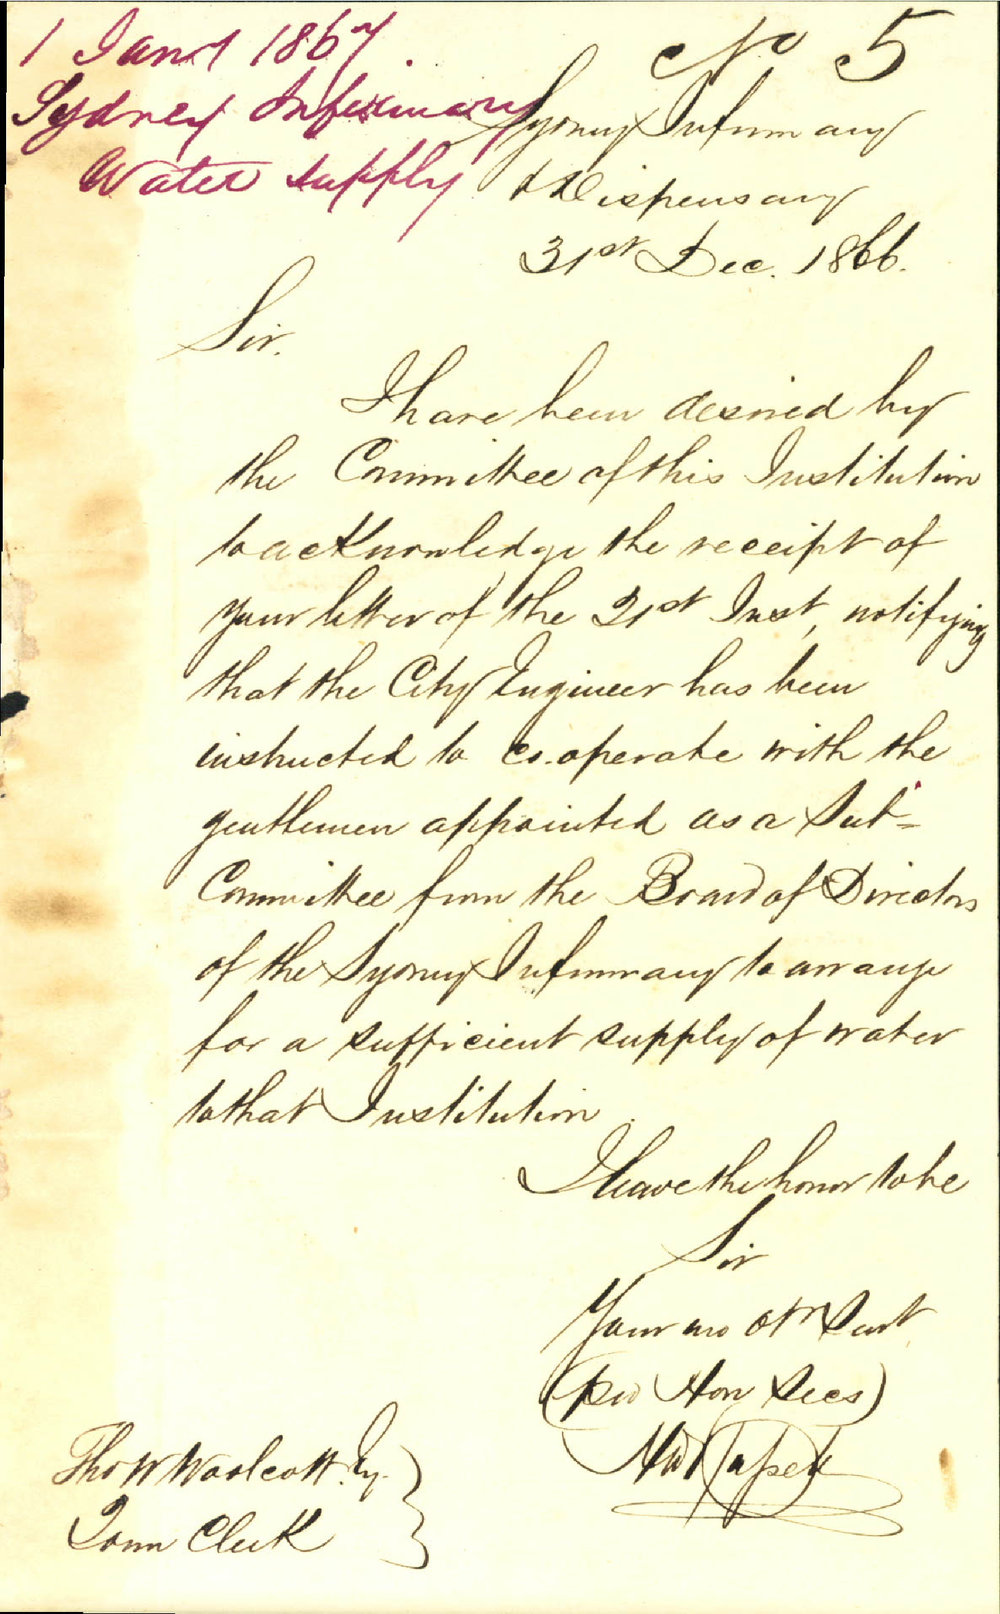 1 Jany 1867.
Sydney Infirmary
Water supply
No 5
Sydney Infirmary
& Dispensary
31st Dec. 1866.
Sir.
I have been desired by
the Committee of this Institution
to acknowledge the receipt of
your letter of the 21st Inst, notifying
that the City Engineer has been
instructed to co.operate with the
gentlemen appointed as a Sub-
Committee from the Board of Directors
of the Sydney Infirmary to arrange
for a sufficient supply of water
to that Institution.
I have the honor to be
Sir
Your mo obt Servt
(pro Hon Secs)
Thos W Woolcott. Esq.
Town Clerk